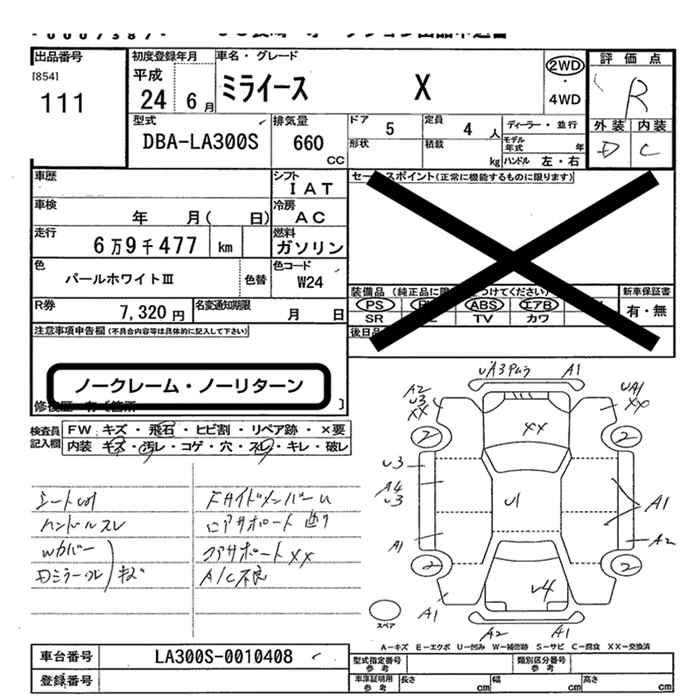 出品番号
[854]
111
初度登録年月
平成
24 6月
車名・グレード
ミライース X
2WD
・
4WD
評価点
R
外装 内装
D C
型式
DBA-LA300S
排気量
660
CC
ドア
5
定員
4 人
ディーラー・並行
形状
積載
kg
モデル
年式 年
ハンドル 左・右
車歴
シフト
IAT
セールスポイント(正常に機能するものに限ります)
車検
年 月( 日)
冷房
AC
走行
6万9千477 km
燃料
ガソリン
色
パールホワイトⅢ
色替
色コード
W24
R券
7,320円
名変通知期限
月 日
装備品
PS
ABS
エアB
SR
TV
カワ
新車保証書
有・無
後日品
注意事項申告欄(不具合内容等は具体的に記入して下さい)
ノークレーム・ノーリターン
検査員
記入欄
FW キズ・飛石・ヒビ割・リペア跡・×要
内装 キズ・汚レ・コゲ・穴・スレ・キレ・破レ
シートU1
ハンドルスレ
Wカバー
キズ
A/C不良
A1
A2
U3
XX
UA1
XX
XX
2
2
U3
A4
U3
U1
A1
A1
A2
2
2
U4
A1
A1
スペア
A2
A1
A-キズ E-エクボ U-凹み W-補修跡 S-サビ C-腐食 XX-交換済
車台番号
LA300S-0010408
登録番号
型式指定番号
参考
類別区分番号
参考
車庫証明用
参考
長さ
cm
幅
cm
高さ
cm